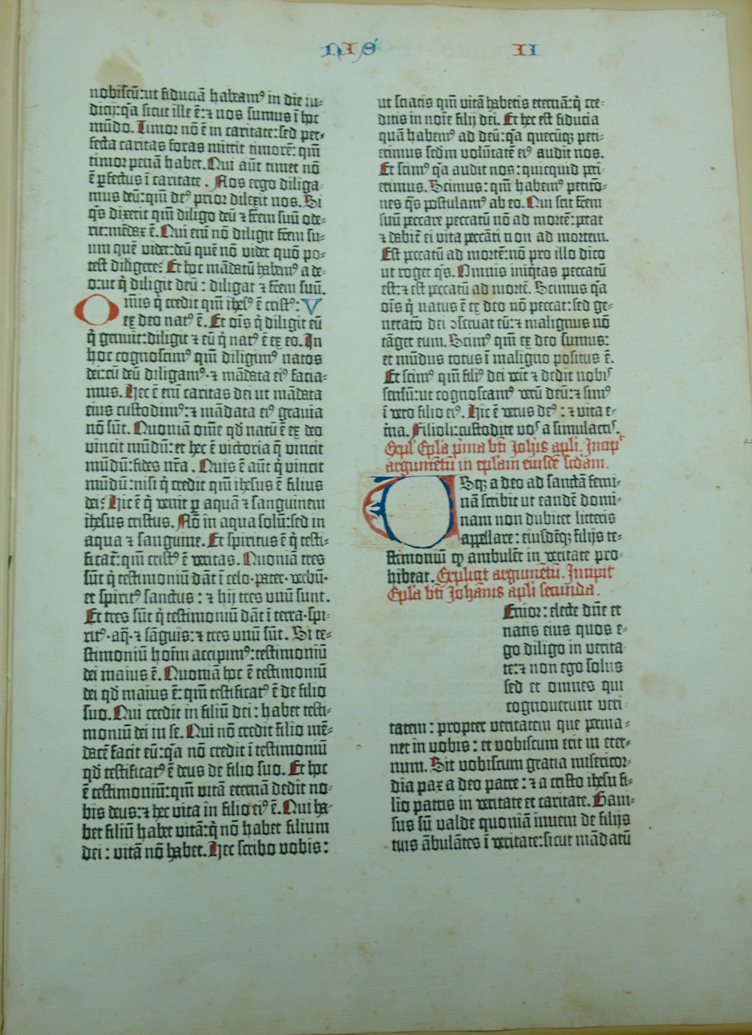 NIS II
nobiscū:ut fiduciā habeamꝰ in die iu-
dicij:q̇a sicut ille ē:⁊ nos sumus ī hoc
mūdo. Timor nō ē in caritate:sed per-
fecta caritas foras mittit timorē:qm̄
timor penā habet. Qui aūt timet nō
ē ꝑfectus ī caritate. Nos ergo diliga-
mus deū:qm̄ deꝰ prior dilexit nos. Si
q̇s dixerit qm̄ diligo deū ⁊ frēm suū ode-
rit:mēdax ē. Qui enī nō diligit frēm su-
um quē videt:deū quē nō videt quō po-
test diligere? Et hoc mādatū habemꝰ a de-
o:ut q̇ diligit deū: diligat ⁊ frēm suū.
Omīs q̇ credit qm̄ ihesꝰ ē cristꝰ: V
ex deo natꝰ ē. Et oīs q̇ diligit eū
q̇ genuit:diligit ⁊ eū q̇ natꝰ ē ex eo. In
hoc cognoscimꝰ qm̄ diligimꝰ natos
dei:cū deū diligamꝰ·⁊ mādata eiꝰ facia-
mus. Hec ē enī caritas dei ut mādata
eius custodimꝰ:⁊ mādata eiꝰ grauia
nō sūt. Quoniā om̄e qd̄ natū ē ex deo
vincit mūdū:et hec ē victoria q̄ vincit
mūdū:fides nr̄a. Quis ē aūt q̇ vincit
mūdū:nisi q̇ credit qm̄ ihesus ē filius
dei? Hic ē q̇ venit ꝑ aquā ⁊ sanguinem
ihesus cristus. Nō in aqua solū:sed in
aqua ⁊ sanguine. Et spiritus ē q̇ testi-
ficat:qm̄ cristꝰ ē veritas. Quoniā tres
sūt q̇ testimoniū dāt ī celo·pater·verbū·
et spiritꝰ sanctus: ⁊ hij tres unū sunt.
Et tres sūt q̇ testimoniū dāt ī terra·spi-
ritꝰ·aq̄·⁊ sāguis:⁊ tres unū sūt. Si te-
stimoniū hoīm accipimꝰ:testimoniū
dei maius ē. Quoniā hoc ē testimoniū
dei qd̄ maius ē:qm̄ testificatꝰ ē de filio
suo. Qui credit in filiū dei: habet testi-
moniū dei in se. Qui nō credit filio mē-
dacē facit eū:q̇a nō credit ī testimoniū
qd̄ testificatꝰ ē deus de filio suo. Et hoc
ē testimoniū:qm̄ vitā eternā dedit no-
bis deus:⁊ hec vita in filio eiꝰ ē. Qui ha-
bet filiū habet vitā:q̇ nō habet filium
dei: vitā nō habet. Hec scribo vobis:
ut sciatis qm̄ vitā habetis eternā:q̇ cre-
ditis in noīe filij dei. Et hec est fiducia
quā habemꝰ ad deū:q̇a quecūq̨ peti-
erimus scdm̄ volūtatē eiꝰ audit nos.
Et scimꝰ q̇a audit nos:quicquid peti-
erimus. Scimus:qm̄ habemꝰ peticō-
nes q̄s postulamꝰ ab eo. Qui scit frēm
suū peccare peccatū nō ad mortē:petat
⁊ dabit̄ ei vita peccāti non ad mortem.
Est peccatū ad mortē:nō pro illo dico
ut roget q̇s. Omnis iniq̇tas peccatū
est:⁊ est peccatū ad mortē. Scimus q̇a
oīs q̇ natus ē ex deo nō peccat:sed ge-
neracō dei ↄseruat eū:⁊ malignus nō
tāget eum. Scimꝰ qm̄ ex deo sumus:
et mūdus totus ī maligno positus ē.
Et scimꝰ qm̄ filiꝰ dei venit ⁊ dedit nobis
sensū:ut cognoscamꝰ verū deū:⁊ simꝰ
ī vero filio eiꝰ. Hic ē verus deꝰ: ⁊ vita e-
tīna. Filioli:custodite vos a simulacris.
Expl' Ep̄la p̄ima bt̄i Joh̄is ap̄li. Incip̄
argumētū in ep̄lam eiusdē scd̄am.
Usq̨ a deo ad sanctā femi-
nā scribit ut eandē domi-
nam non dubitet litteris
appellare: eiusdēq̨ filijs te-
stimoniū ꝙ ambulēt in veritate pro-
hibeat. Explicit argumētū. Incipit
Ep̄la bt̄i Joh̄ānis ap̄li secunda.
Enior: electe dn̄e et
natis eius quos e-
go diligo in verita-
te:⁊ non ego solus
sed et omnes qui
cognouerunt veri-
tatem: propter veritatem que perma-
net in vobis: et vobiscum erit in eter-
num. Sit vobiscum gratia misericor-
dia pax a deo patre: ⁊ a cristo ihesu fi-
lio patris in veritate et caritate. Gaui-
sus sū valde quoniā inueni de filijs
tuis ābulātes ī veritate:sicut mādatū